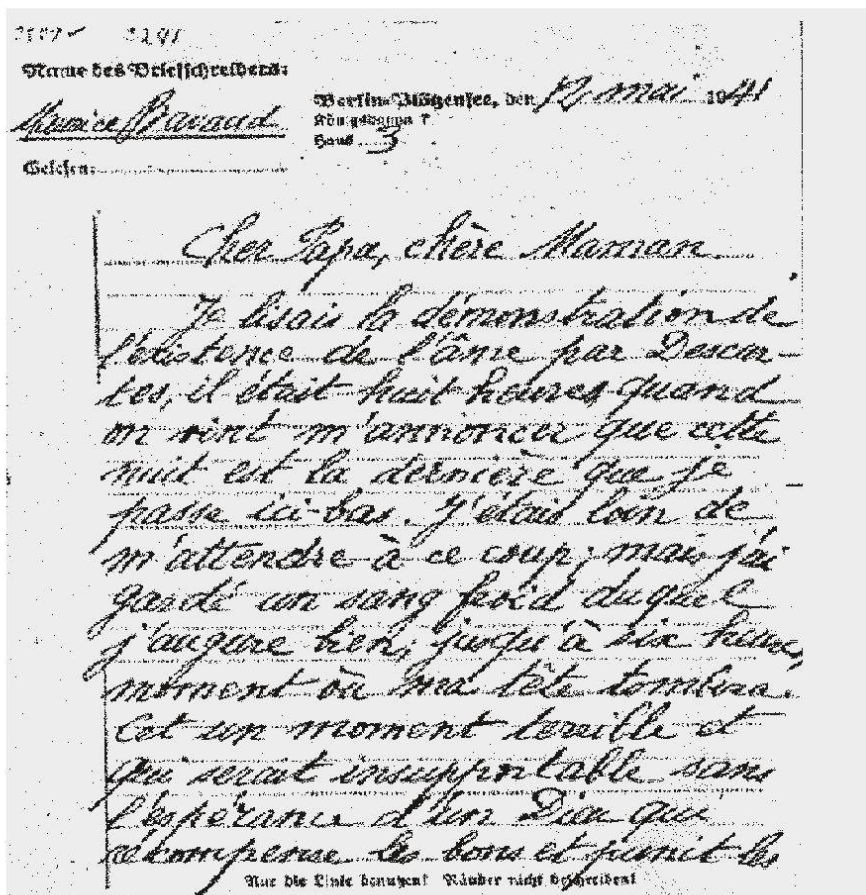 Name des Briefschreibers:
Maurice Bavaud
Berlin-Plötzensee, den 12 mai 1941
Königsdamm 7
Haus 3
Gelesen:
Cher Papa, chère Maman.
Je lisais la démonstration de
l'existence de l'âme par Descar-
tes, il était huit heures, quand
on vint m'annoncer que cette
nuit est la dernière que je
passe ici-bas. J'étais loin de
m'attendre à ce coup; mais j'ai
gardé un sang froid duquel
j'augure bien; jusqu'à six heures,
moment où ma tête tombera.
Cet un moment terrible et
qui serait insupportable sans
l'espérance d'un Dieu qui
récompense les bons et punit les
Nur die Linie benutzen! Ränder nicht beschreiben!